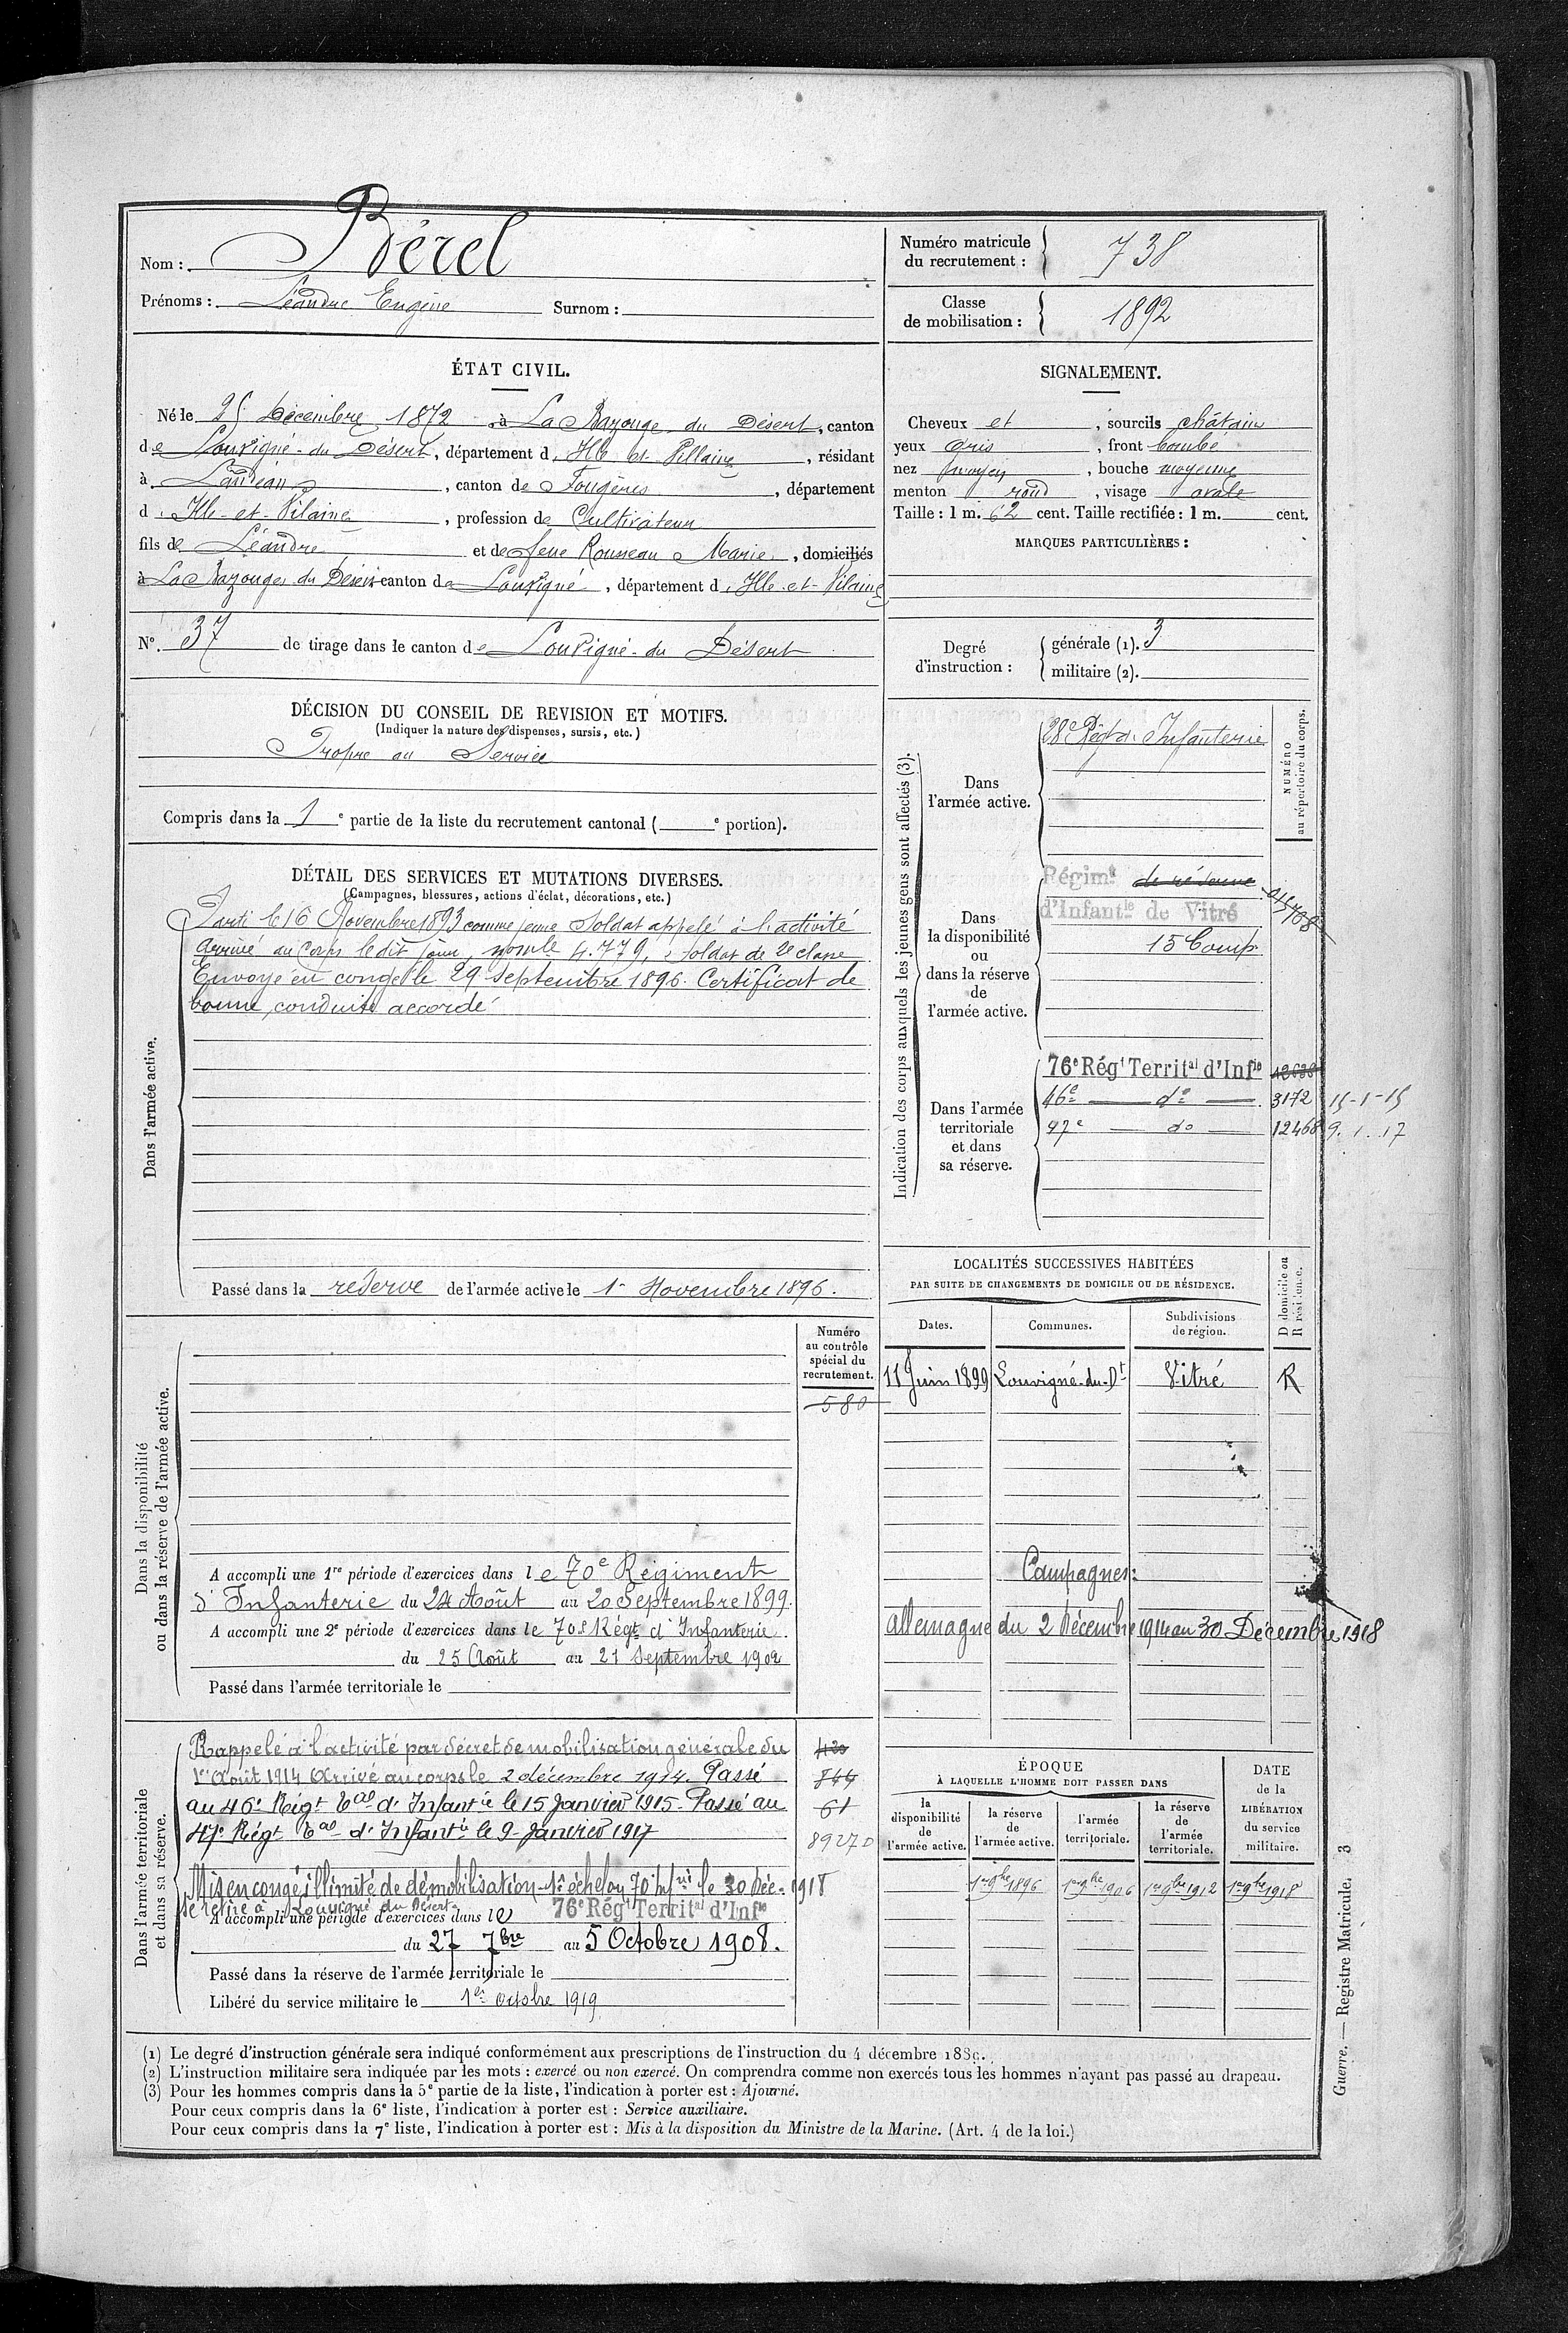 Nom : Bérel
Prénoms : Léandre Eugène Surnom :
Numéro matricule du recrutement : 738
Classe de mobilisation : 1892
ÉTAT CIVIL.
Né le 25 Décembre 1872 à La Bazouge du Désert, canton
de Louvigné-du-Désert, département d'Ille et Villaine, résidant
à Landéan, canton de Fougères, département
d'Ille-et-Vilaine, profession de Cultivateur
fils de Léandre et de feue Rousseau Marie, domiciliés
à La Bazouges du Désert canton de Louvigné, département d'Ille-et-Vilaine
N° 37 de tirage dans le canton de Louvigné-du Désert
SIGNALEMENT.
Cheveux et , sourcils châtain
yeux gris , front bombé
nez moyen , bouche moyenne
menton rond , visage ovale
Taille : 1 m. 62 cent. Taille rectifiée : 1 m. cent.
MARQUES PARTICULIÈRES :
Degré d'instruction :
générale (1). 3
militaire (2).
DÉCISION DU CONSEIL DE REVISION ET MOTIFS.
(Indiquer la nature des dispenses, sursis, etc.)
Propre au Service
Compris dans la 1e partie de la liste du recrutement cantonal ( e portion).
DÉTAIL DES SERVICES ET MUTATIONS DIVERSES.
(Campagnes, blessures, actions d'éclat, décorations, etc.)
Dans l'armée active.
Parti le 16 Novembre 1893 comme jeune Soldat appelé à l'activité
Arrivé au Corps le dit jour, 4.779, soldat de 2e classe
Envoyé en congé le 29 Septembre 1896. Certificat de
bonne conduite accordé
Passé dans la réserve de l'armée active le 1er Novembre 1896.
Indication des corps auxquels les jeunes gens sont affectés (3).
NUMÉRO au répertoire du corps.
Dans l'armée active.
Régt d'Infanterie
Dans la disponibilité ou dans la réserve de l'armée active.
Régimt de réserve
d'Infantie de Vitré
15 Comp
Dans l'armée territoriale et dans sa réserve.
76e Régt Territal d'Infie
46e — do — 3172 15-1-15
47e — do — 12468 9.1.17
LOCALITÉS SUCCESSIVES HABITÉES
PAR SUITE DE CHANGEMENTS DE DOMICILE OU DE RÉSIDENCE.
D domicile ou R résidence.
Dates. Communes. Subdivisions de région.
11 Juin 1899 Louvigné-du-Dt Vitré R
Campagnes:
Allemagne du 2 Décembre 1914 au 30 Décembre 1918
Dans la disponibilité ou dans la réserve de l'armée active.
Numéro au contrôle spécial du recrutement.
580
A accompli une 1re période d'exercices dans le 70e Régiment
d'Infanterie du 24 Août au 20 Septembre 1899.
A accompli une 2e période d'exercices dans le 70e Régt d'Infanterie.
du 25 Août au 21 Septembre 1902
Passé dans l'armée territoriale le
Dans l'armée territoriale et dans sa réserve.
Rappelé à l'activité par décret de mobilisation générale du
1er Août 1914 Arrivé au corps le 2 décembre 1914. Passé
au 46e Régt Tal d'Infantie le 15 Janvier 1915. Passé au
47e Régt Tal d'Infantie le 9 Janvier 1917
844
61
Mis en congé illimité de démobilisation 1er échelon 70e le 30 Déc. 1918
se retire à Louvigné du Désert
A accompli une période d'exercices dans le 76e Régt Territal d'Infie
du 27 7bre au 5 Octobre 1908.
Passé dans la réserve de l'armée territoriale le
Libéré du service militaire le 1er octobre 1919
ÉPOQUE
À LAQUELLE L'HOMME DOIT PASSER DANS
la disponibilité de l'armée active.
la réserve de l'armée active.
l'armée territoriale.
la réserve de l'armée territoriale.
DATE de la LIBÉRATION du service militaire.
1er 9bre 1896 1er 9bre 1906 1er 9bre 1912 1er 9bre 1918
(1) Le degré d'instruction générale sera indiqué conformément aux prescriptions de l'instruction du 4 décembre 1889.
(2) L'instruction militaire sera indiquée par les mots : exercé ou non exercé. On comprendra comme non exercés tous les hommes n'ayant pas passé au drapeau.
(3) Pour les hommes compris dans la 5e partie de la liste, l'indication à porter est : Ajourné.
Pour ceux compris dans la 6e liste, l'indication à porter est : Service auxiliaire.
Pour ceux compris dans la 7e liste, l'indication à porter est : Mis à la disposition du Ministre de la Marine. (Art. 4 de la loi.)
Guerre. — Registre Matricule. 3